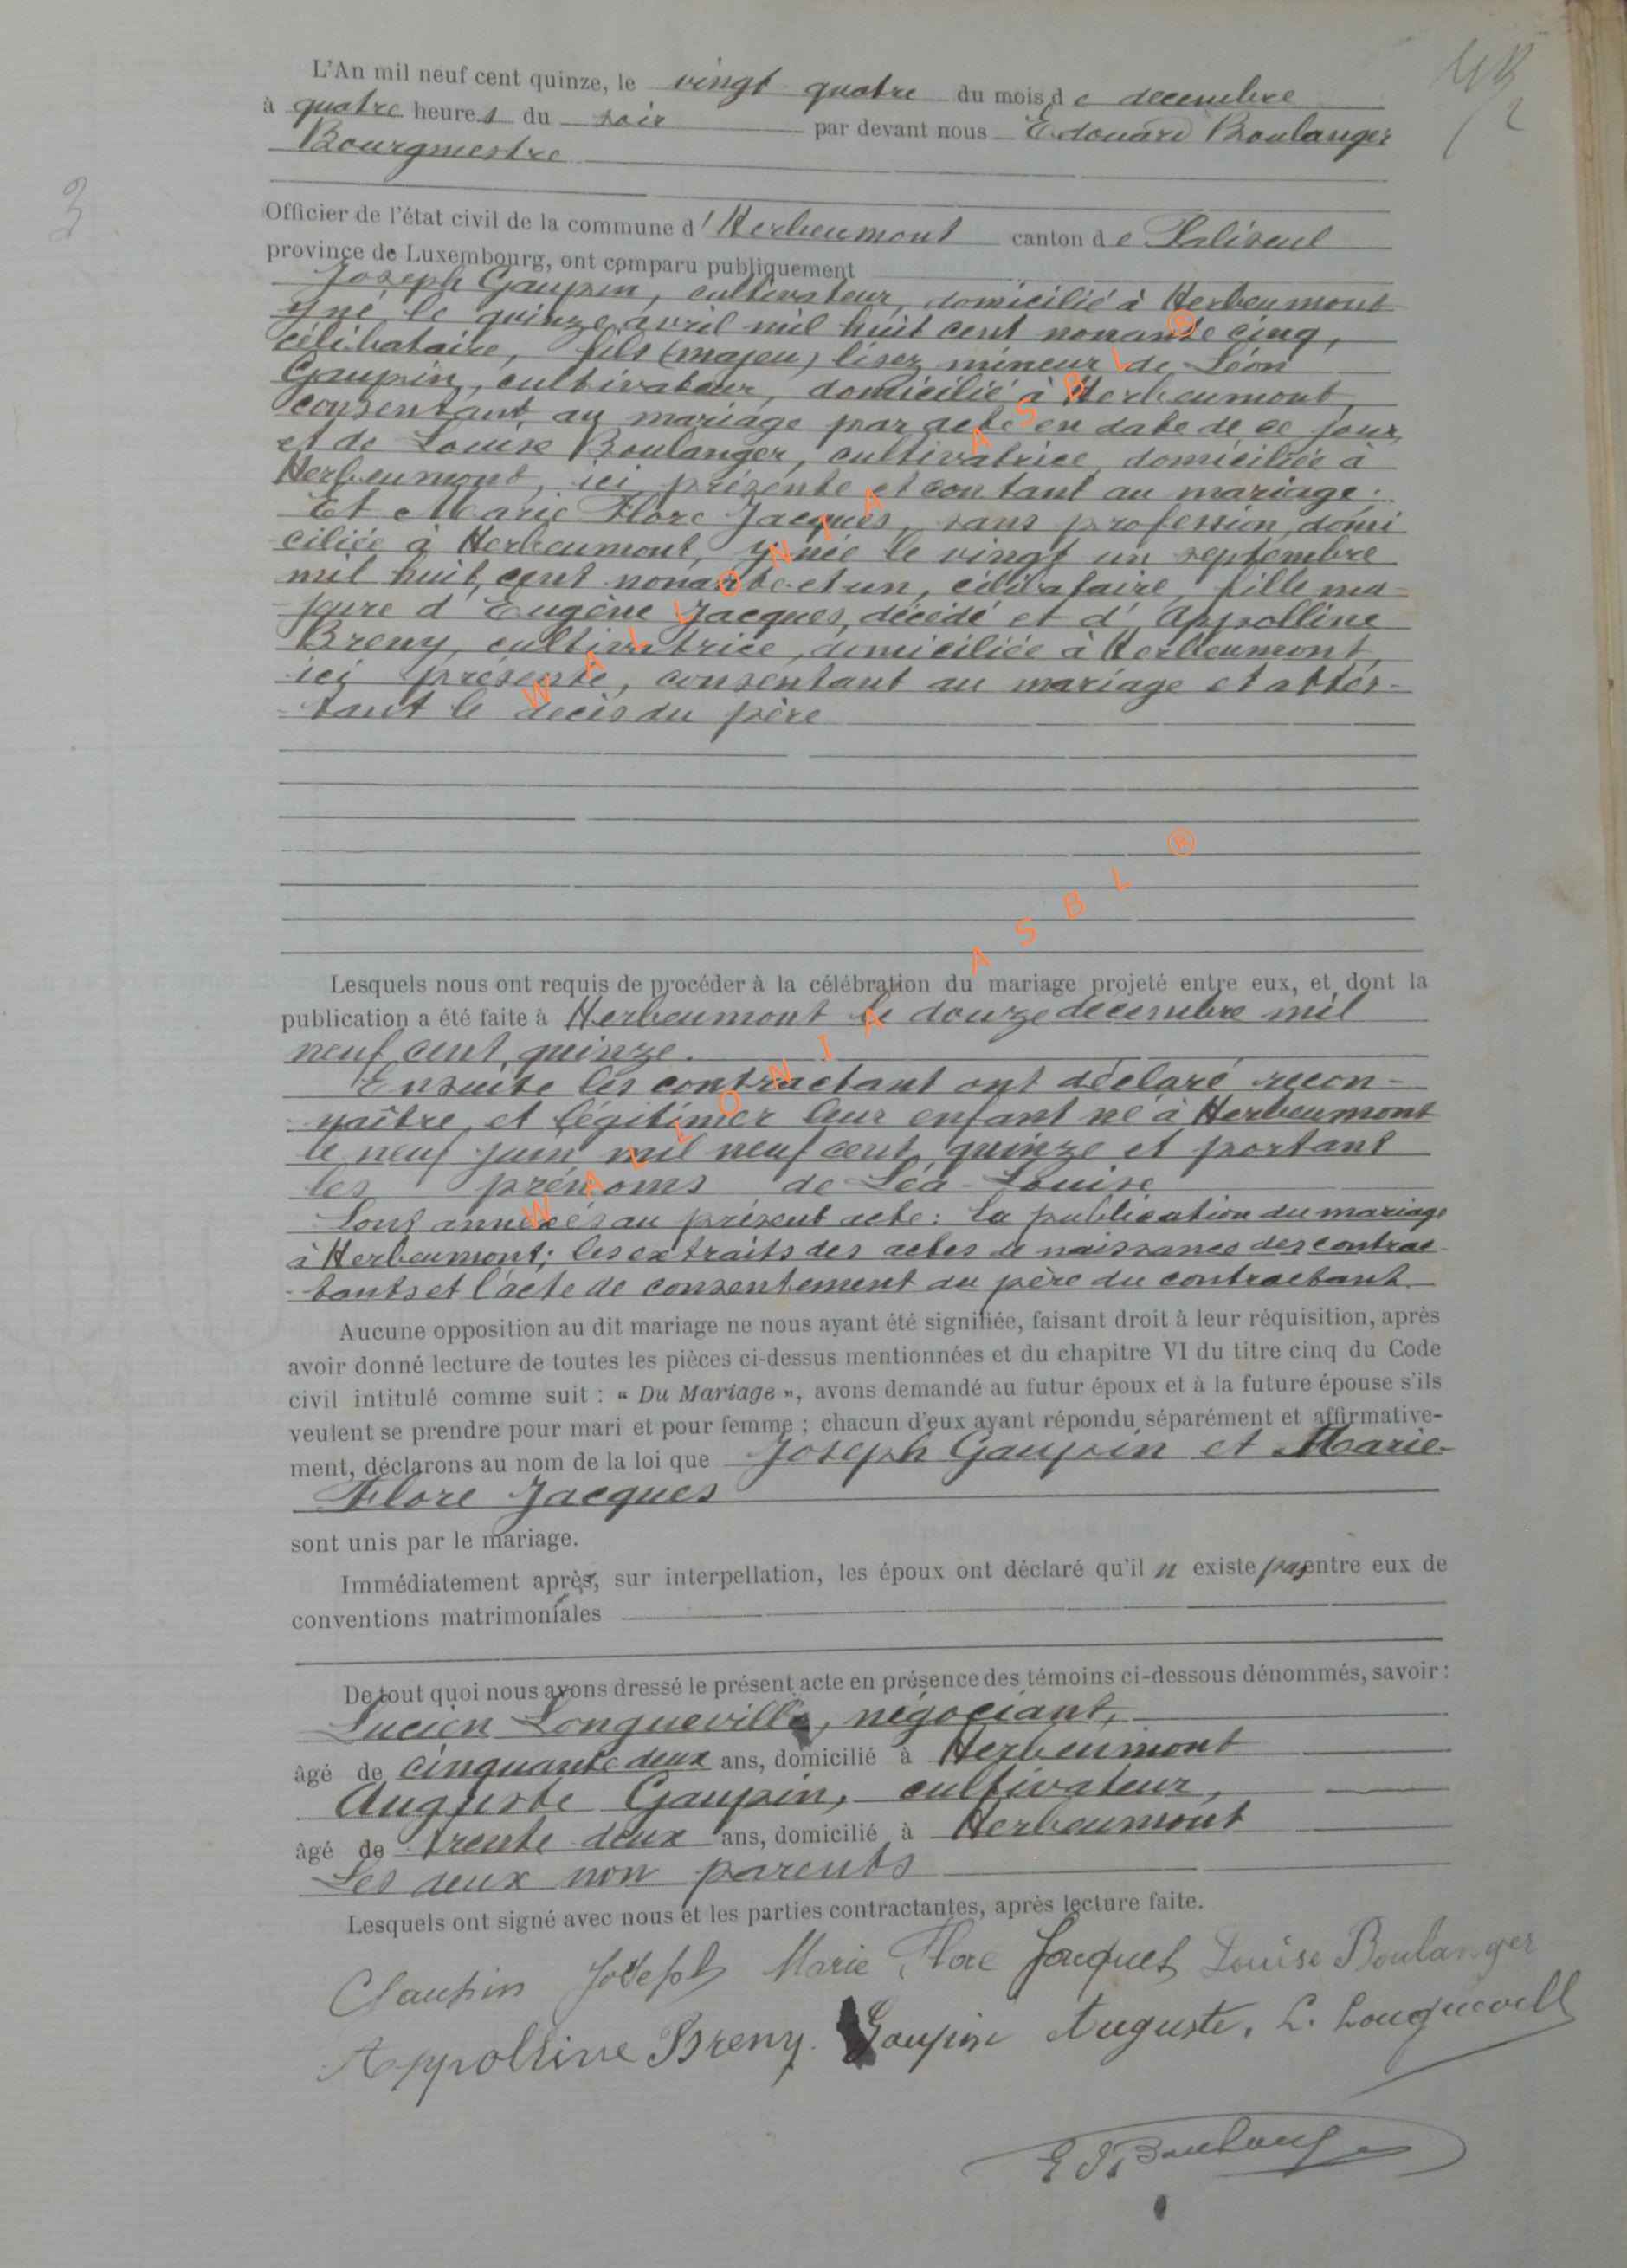 L'An mil neuf cent quinze, le vingt quatre du mois de decembre
à quatre heures du soir par devant nous Edouard Boulanger
Bourgmestre
3
Officier de l'état civil de la commune d'Herbeumont canton de Paliseul
province de Luxembourg, ont comparu publiquement
Joseph Gaupin, cultivateur, domicilié à Herbeumont
y né le quinze avril mil huit cent nonante cinq,
célibataire, fils (majeu) lisez mineur de Léon
Gaupin, cultivateur, domicilié à Herbeumont,
consentant au mariage par acte en date de ce jour,
et de Louise Boulanger, cultivatrice, domiciliée à
Herbeumont, ici présente et con tant au mariage;
Et Marie Flore Jacques, sans profession, domi
ciliée à Herbeumont, y née le vingt un septembre
mil huit cent nonante et un, célibataire, fille ma-
jeure d'Eugène Jacques, décédé et d'Appolline
Breny, cultivatrice, domiciliée à Herbeumont,
ici présente, consentant au mariage et attes-
tant le décès du père
WALLONIA ASBL ®
Lesquels nous ont requis de procéder à la célébration du mariage projeté entre eux, et dont la
publication a été faite à Herbeumont le douze décembre mil
neuf cent quinze.
Ensuite les contractant ont déclaré recon-
naître et légitimer leur enfant né à Herbeumont
le neuf juin mil neuf cent quinze et portant
les prénoms de Léa-Louise
Sont annexés au présent acte: la publication du mariage
à Herbeumont; les extraits des actes de naissance des contrac-
tants et l'acte de consentement du père du contractant.
WALLONIA ASBL ®
Aucune opposition au dit mariage ne nous ayant été signifiée, faisant droit à leur réquisition, après
avoir donné lecture de toutes les pièces ci-dessus mentionnées et du chapitre VI du titre cinq du Code
civil intitulé comme suit : « Du Mariage », avons demandé au futur époux et à la future épouse s'ils
veulent se prendre pour mari et pour femme ; chacun d'eux ayant répondu séparément et affirmative-
ment, déclarons au nom de la loi que Joseph Gaupin et Marie-
Flore Jacques
sont unis par le mariage.
Immédiatement après, sur interpellation, les époux ont déclaré qu'il n existe pas entre eux de
conventions matrimoniales
De tout quoi nous avons dressé le présent acte en présence des témoins ci-dessous dénommés, savoir :
Lucien Longueville, négociant,
âgé de cinquante deux ans, domicilié à Herbeumont
Auguste Gaupin, cultivateur,
âgé de trente deux ans, domicilié à Herbeumont
Les deux non parents
Lesquels ont signé avec nous et les parties contractantes, après lecture faite.
Gaupin Joseph Marie Flore Jacques Louise Boulanger
Appolline Breny. Gaupin Auguste. L. Longueville
E J Boulanger